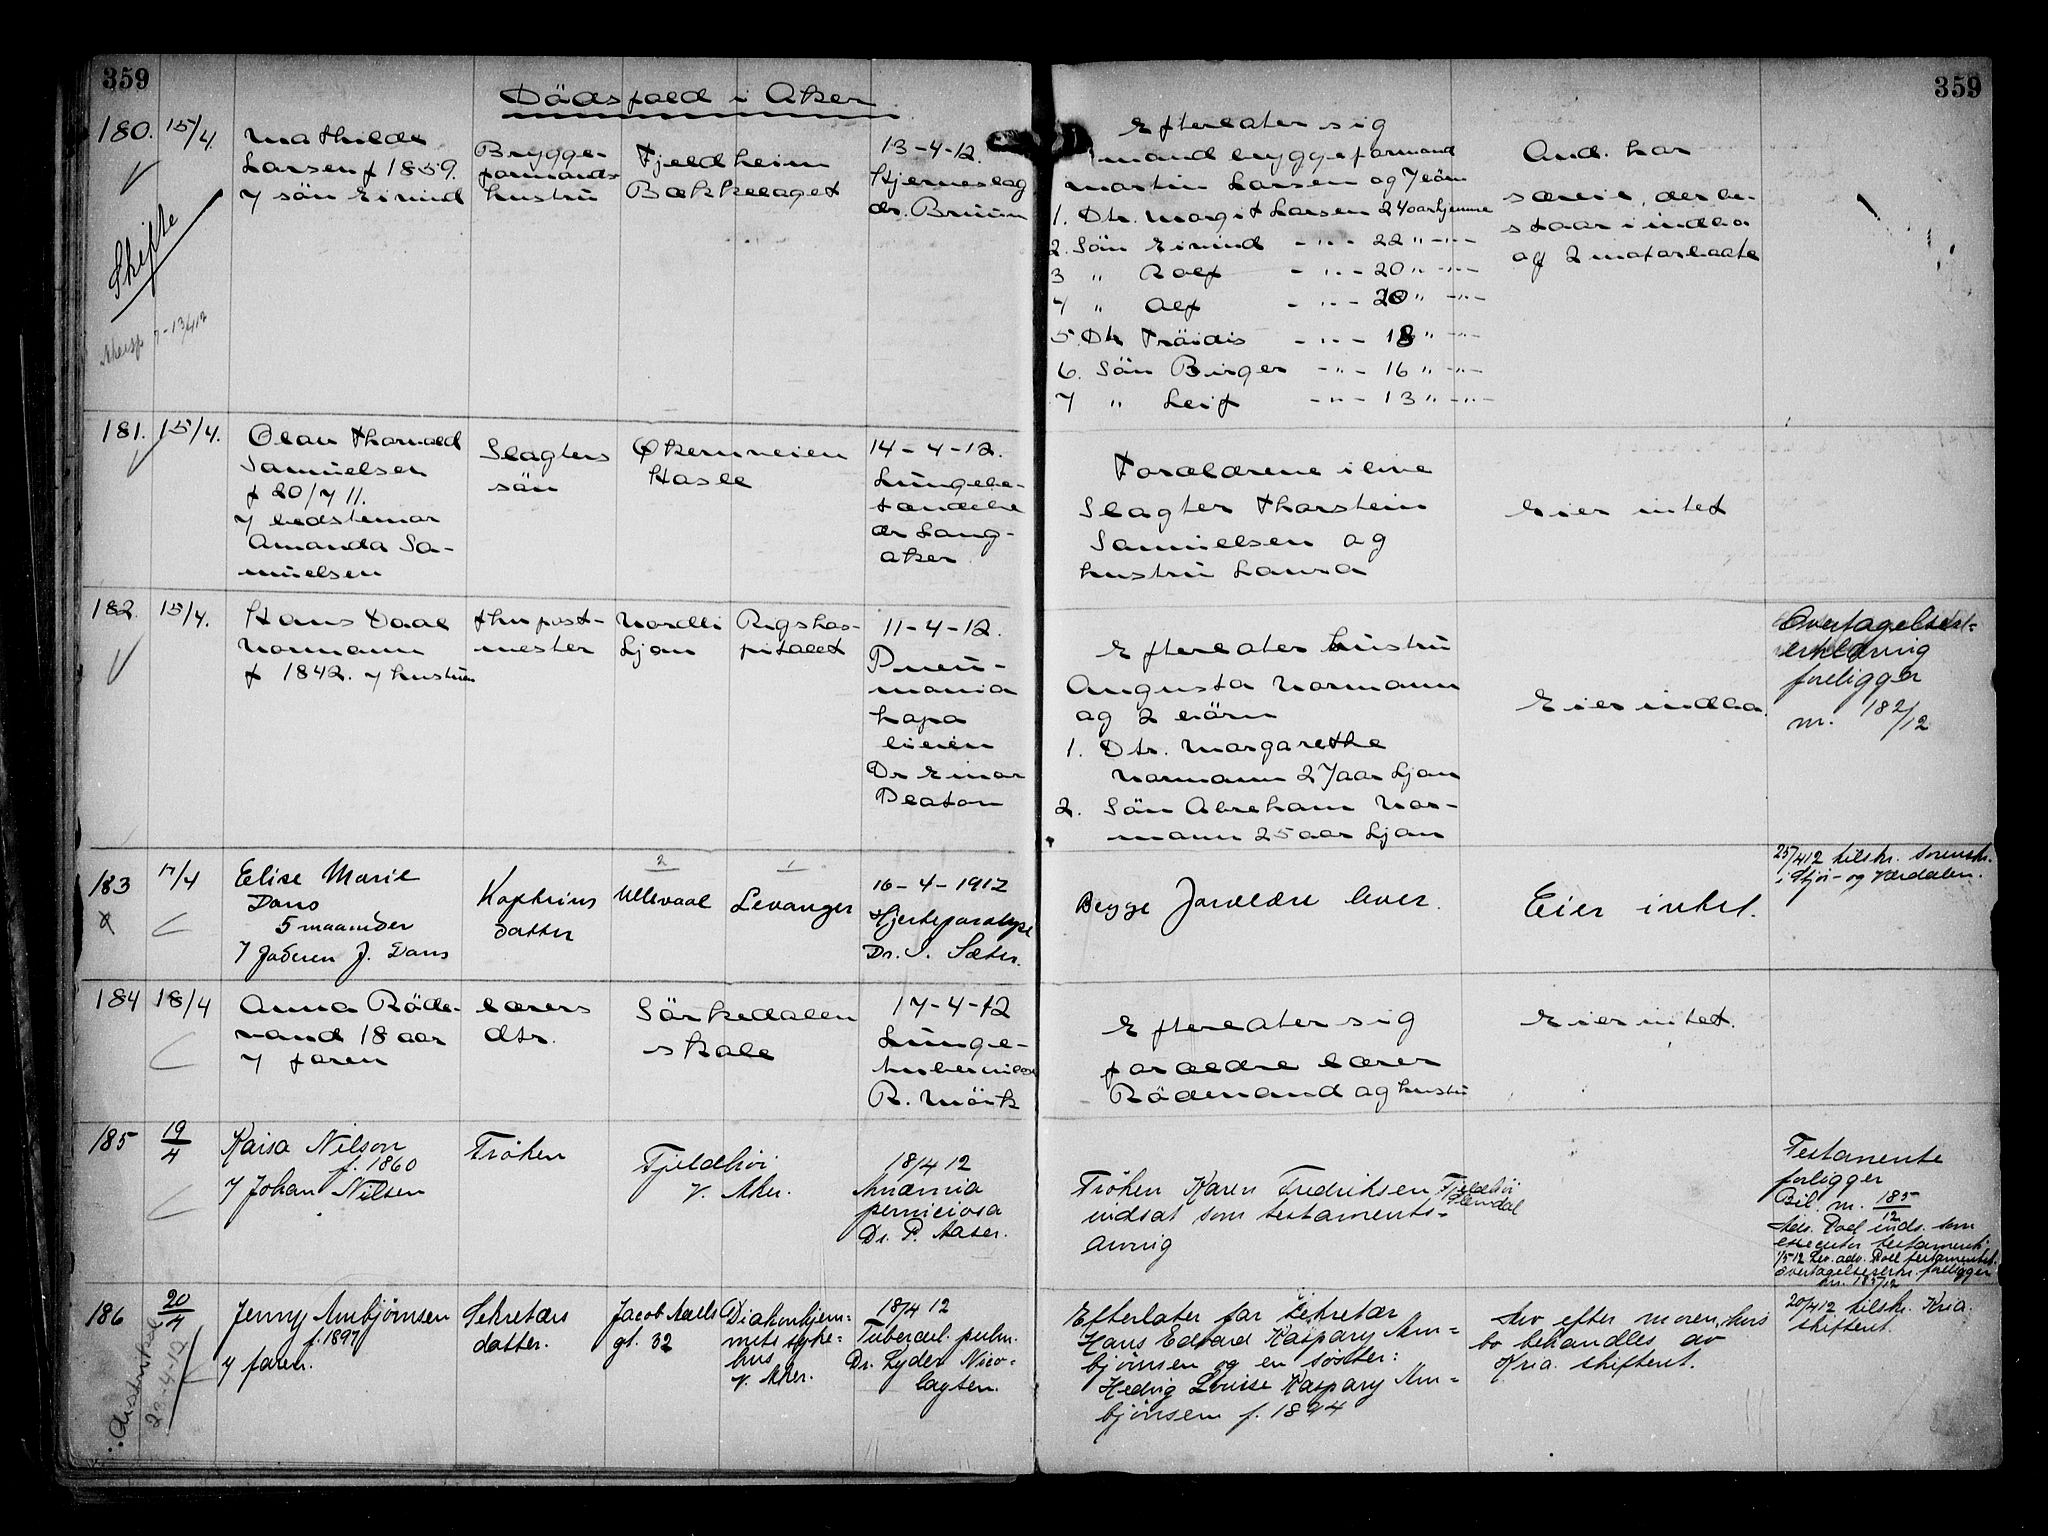 359
359
Dödsfald i Aker
180. 15/4.
Mathilde
Larsen f 1859.
7 sön Eivind
Brygge-
formands
hustru
Fjeldheim
Bækkelaget
13-4-12.
Hjerneslag
dr. Bruun
Efterlater sig
mand bryggeformand
Martin Larsen og 7 börn
1. Dtr. Margit Larsen 24 aar hjemme
2. Sön Eivind - " - 22 " - " -
3 " Rolf - " - 20 " - " -
4 " Alf - " - 20 " - " -
5. Dtr Fröidis - " - 18 " - " -
6. Sön Birger - " - 16 " - " -
7 " Leif - " - 13 " - " -
And. har
særeie, der be-
staar i indbo
og 2 motorbaate
Skifte
181. 15/4.
Olav Thorvald
Samuelsen
f 20/7 11.
7 bedstemor
Amanda Sa-
muelsen
Slagters
sön
Økernveien
Hasle
14-4-12.
Lungebe-
tændelse
dr Lang-
aker
Forældrene ilive
Slagter Thorstein
Samuelsen og
hustru Laura
Eier intet
182. 15/4.
Hans Daae
Normann
f 1842. 7 hustruen
fhv post-
mester
Nordli
Ljan
Rigshos-
pitalet
11-4-12.
Pneu-
monia
Dr Einar
Platou
Efterlater hustru
Augusta Normann
og 2 börn
1. Dtr. Margarethe
Normann 27 aar Ljan
2. Sön Abraham Nor-
mann 25 aar Ljan
Eier indbo.
Overtagelses-
erklæring
foreligger
nr. 182/12
183 17/4
Elise Marie
Dans
5 maaneder
7 faderen J. Dans
Kapteins
datter
2
Ullevaal
1
Levanger
16-4-1912
Hjerteparalyse
Dr. S. Sæter.
Begge forældre lever.
Eier intet.
25/4 12 tilskr. sorenskr.
i Stjør- og Værdalen.
184 18/4
Anna Röde-
vand 18 aar
7 faren
lærers
dtr.
Sörkedalen
skole
17-4-12
Lunge-
tuberculose
R. Mörk
Efterlater sig
forældre lærer
Rödevand og hustru
Eier intet.
185 19/4
Kaisa Nilson
f. 1860
7 Johan Nilsen
Frøken
Fjeldhøi
V. Aker.
18/4 12
Anæmia
perniciosa
Dr. P. Aaser.
Frøken Karen Fredriksen, Fjeldhøi
indsat som testaments-
arving
Testamente
foreligger
Bil. nr. 185/12
inds. som
executor testamenti.
186 20/4
Jenny Arnbjørnsen
f. 1897
7 faren.
Sekretærs
datter.
Jacob Aalls
gt. 32
Diakonhjem-
mets syke-
hus
V. Aker.
18/4 12
Tubercul. pulm.
Dr. Lyder Nico-
laysen.
Efterlater far sekretær
Hans Edvard Kaspary Arn-
bjørnsen og en søster:
Hedvig Louise Kaspary Arn-
bjørnsen f. 1894
Arv efter moren, hvis
bo behandles av
Kria. skifteret.
20/4 12 tilskr. Kria.
skifteret.